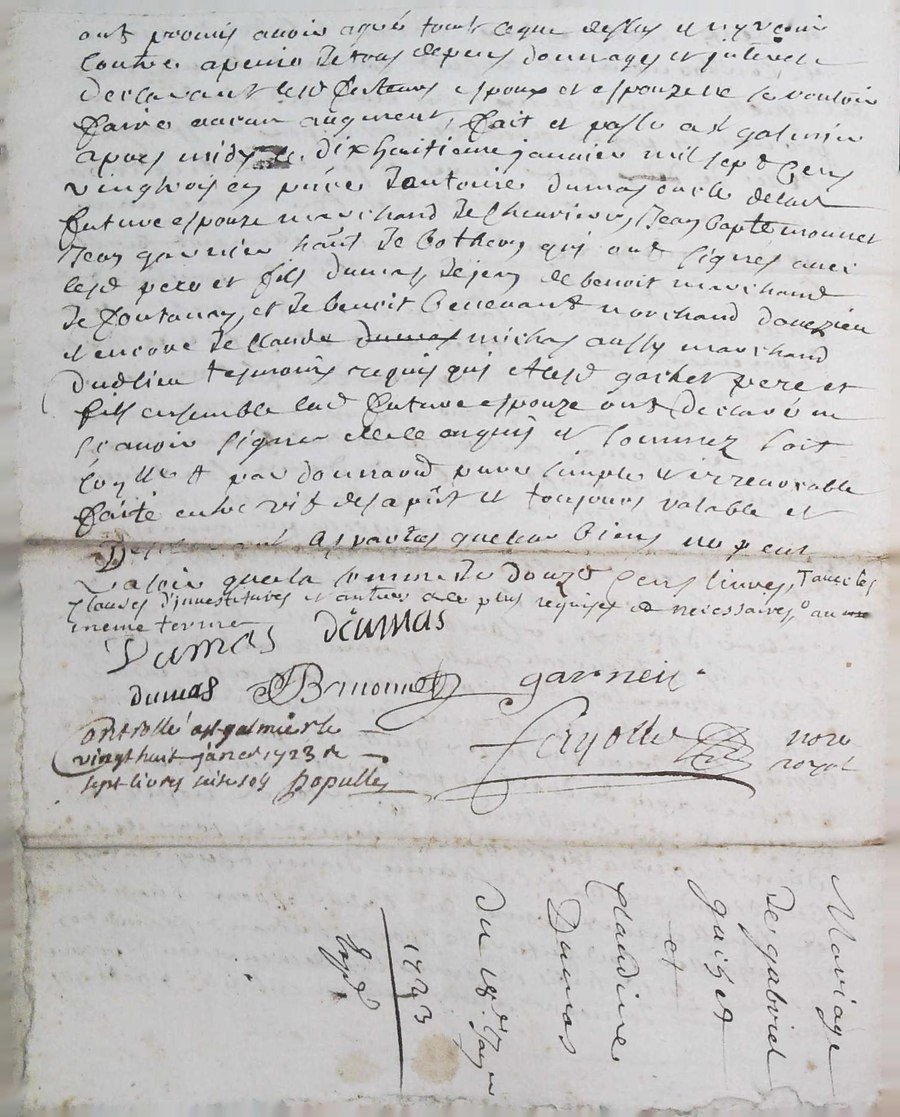 ont promis avoir agréé tout ce que dessus n'y venir
contre a peine de tous depens dommages et interests
declarant lesd futeurs espoux et espouze ne se vouloir
faire aucun augment, fait et passé a st galmier
apres midy le dixhuitieme janvier mil sept cens
vingtrois en pnce d'antoine dumas oncle de lad
future espouze marchand de chevrieres, Jean bapte monnet
Jean garnier hant de botheon qui ont signes avec
lesd pere et fils dumas, de jean de benoit marchand
de fontanay, et de benoit marchand
et encore de claude dumas michas aussy marchand
dudlieu tesmoins requis qui et lesd gachet pere et
fils ensemble lad future espouze ont declaré ne
scavoir signer de ce enquis et sommez soit
par donnaon pure simple et irrevocable
faite entre vifs des a pnt et toujours valable et
as partas que leurs biens ne peut
valoir que la somme de douze cens livres, avec les
clauses d'investitures et autres a ce plus requises et necessaires, au
meme terme
Dumas Dumas
dumas JBmonnet garnier
Controllé a st galmier le
vingt huit janer 1723 R
sept livres seize s Populle
nore
royal
Mariage
de gabriel
gaiset
et
Claudine
Dumas
du 18e Janr
1723
Expd